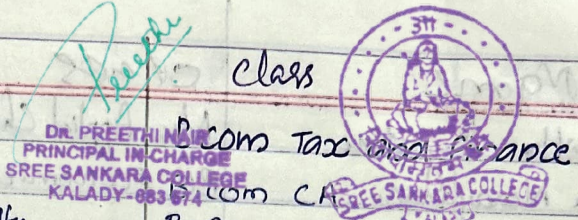 Preethi
Class
DR. PREETHI NAIR
PRINCIPAL IN-CHARGE
SREE SANKARA COLLEGE
KALADY-683 574
B com Tax and Finance
B com CA
SREE SANKARA COLLEGE